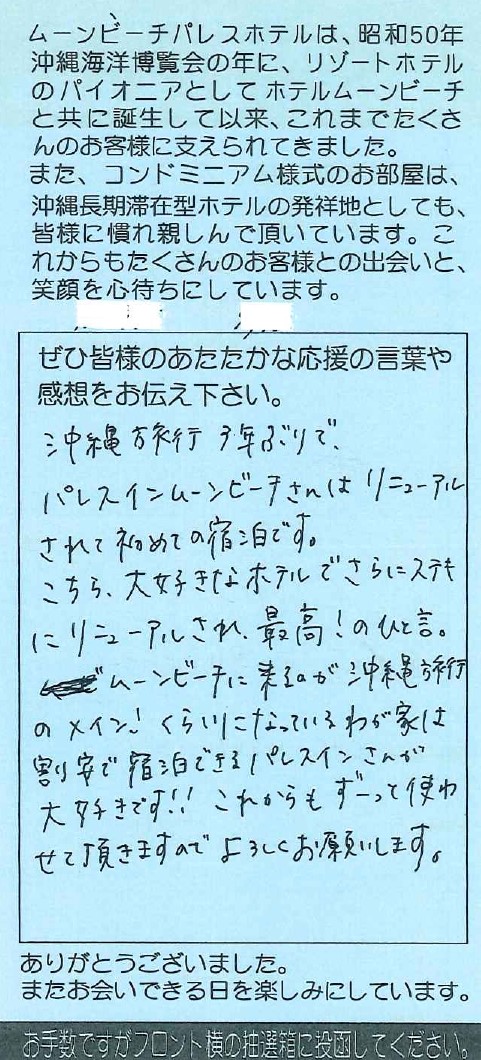 ムーンビーチパレスホテルは、昭和50年
沖縄海洋博覧会の年に、リゾートホテル
のパイオニアとしてホテルムーンビーチ
と共に誕生して以来、これまでたくさ
んのお客様に支えられてきました。
また、コンドミニアム様式のお部屋は、
沖縄長期滞在型ホテルの発祥地としても、
皆様に慣れ親しんで頂いています。こ
れからもたくさんのお客様との出会いと、
笑顔を心待ちにしています。
ぜひ皆様のあたたかな応援の言葉や
感想をお伝え下さい。
沖縄旅行 3年ぶりで、
パレスインムーンビーチさんは リニューアル
されて初めての宿泊です。
こちら、大好きなホテルでさらにステキ
にリニューアルされ、最高!のひと言。
ムーンビーチに来るのが沖縄旅行
のメイン!くらいになっているわが家は
割安で宿泊できるパレスインさんが
大好きです!! これからもずーっと使わ
せて頂きますのでよろしくお願いします。
ありがとうございました。
またお会いできる日を楽しみにしています。
お手数ですがフロント横の抽選箱に投函してください。